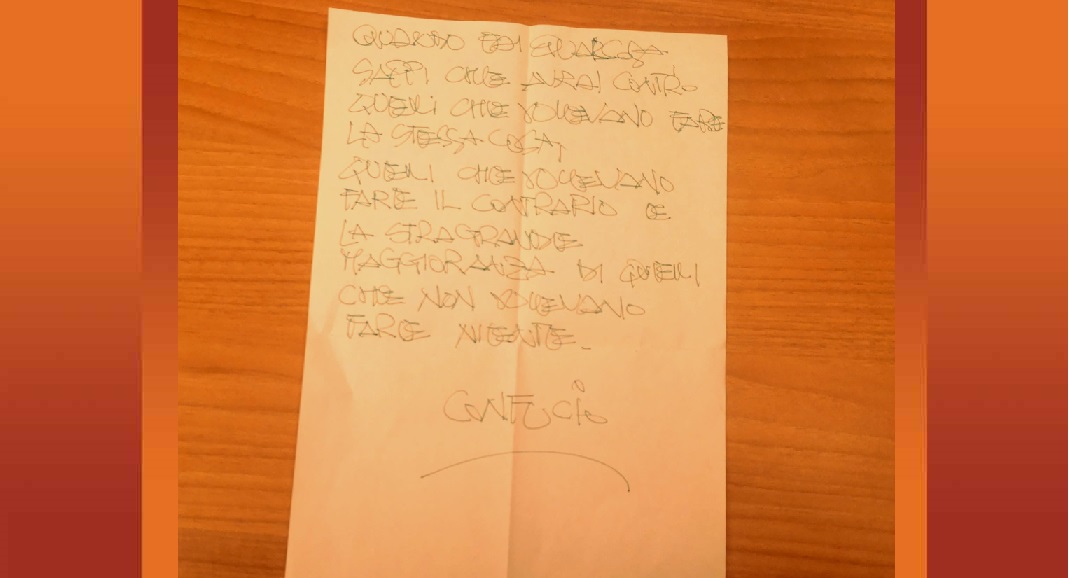 QUANDO FAI QUALCOSA
SAPPI CHE AVRAI CONTRO
QUELLI CHE VOLEVANO FARE
LA STESSA COSA,
QUELLI CHE VOLEVANO
FARE IL CONTRARIO E
LA STRAGRANDE
MAGGIORANZA DI QUELLI
CHE NON VOLEVANO
FARE NIENTE.
CONFUCIO